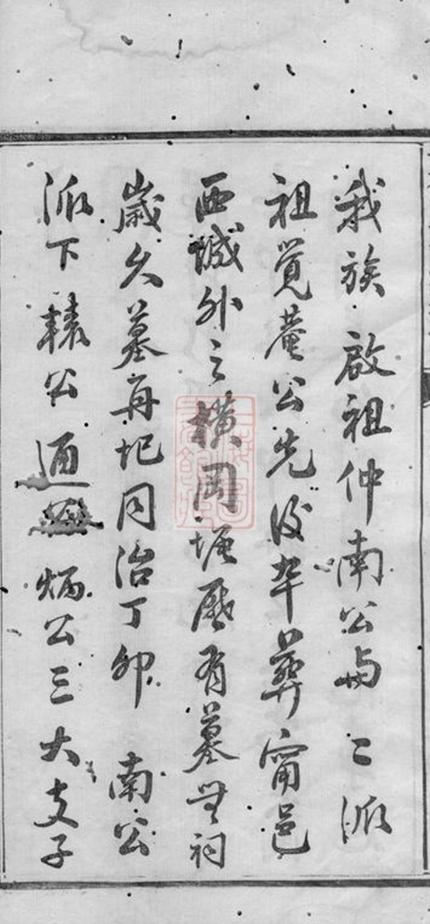 我族啟祖仲南公與二派
祖覺菴公先後卒葬甯邑
西城外之橫岡堀歷有墓無祠
歲久墓再圮同治丁卯南公
派下轅公通公炳公三大支子